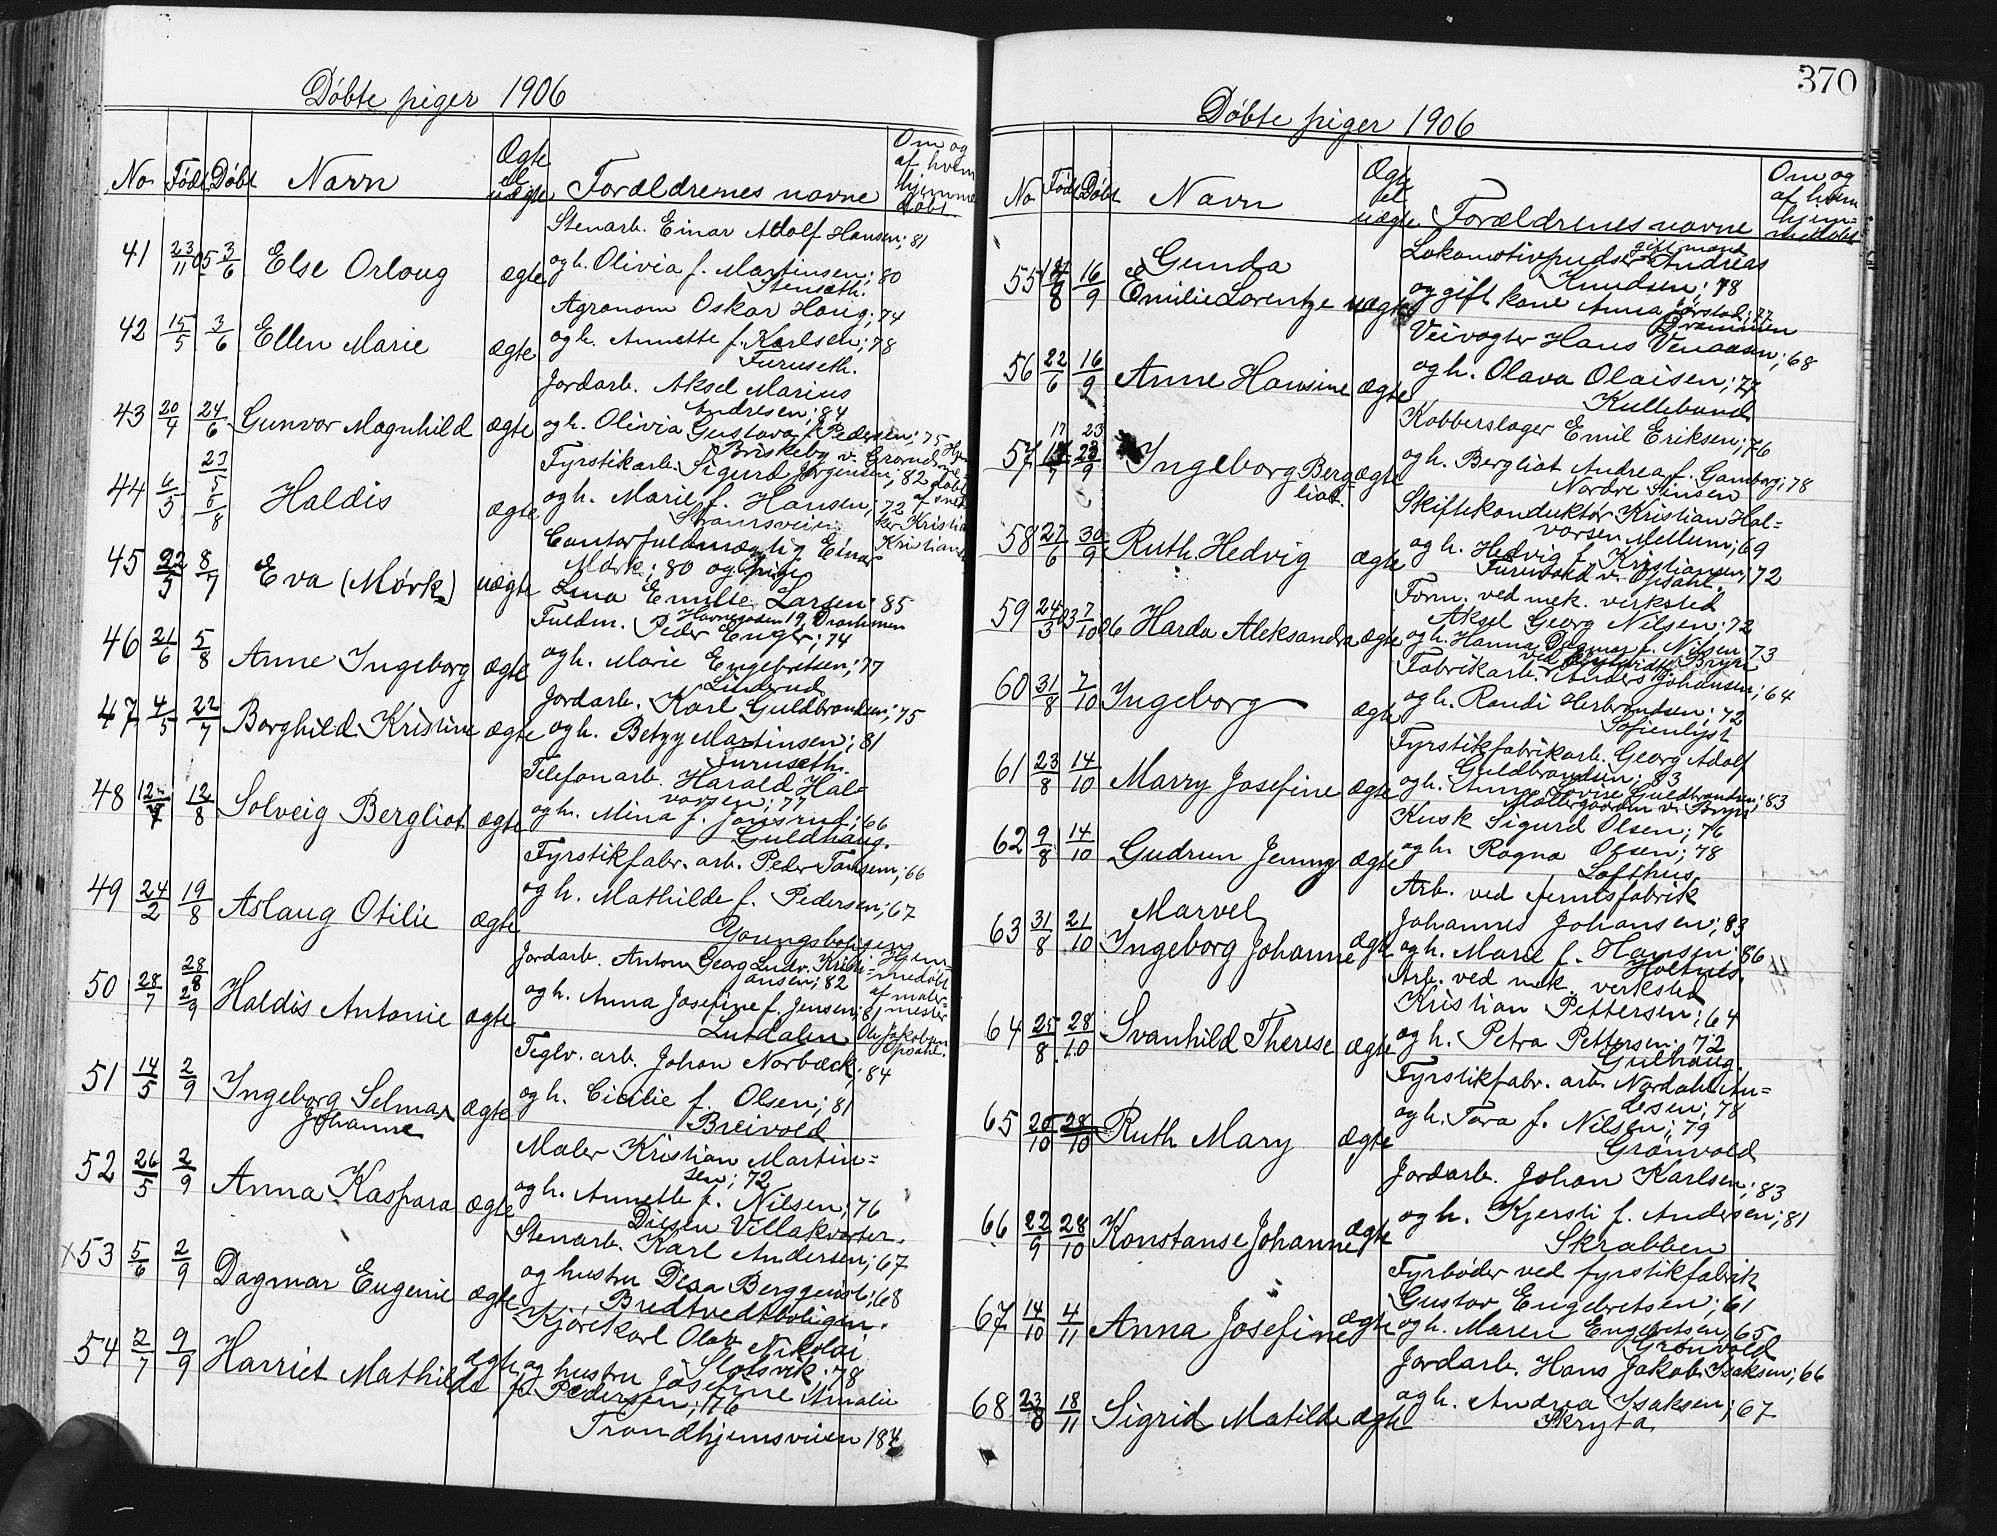 Døbte piger 1906
No Født Døbt Navn Ægte el uægte Forældrenes navne Om og af hvem hjemme døbt
41 23/11 05 3/6 Else Orloug ægte Stenarb. Einar Adolf Hansen; 81
og h. Olivia f. Martinsen; 80
Stenseth.
42 15/5 3/6 Ellen Marie ægte Agronom Oskar Haug; 74
og h. Annette f. Karlsen; 78
Furuseth.
43 20/4 24/6 Gunvor Magnhild ægte Jordarb. Aksel Marius
Andresen; 84
og h. Olivia Gustava f. Pedersen; 75
Briskeby v. Grorud
44 6/5 23/5 5/8 Haldis ægte Fyrstikarb. Sigurd Jørgensen; 82
og h. Marie f. Hansen; 72
Strømsveien
Hjemmedøbt af snekker Kristian Kristians
45 22/3 8/7 Eva (Mørk) uægte Contorfuldmægtig Einar
Mørk; 80 og pige
Lina Emilie Larsen; 85
Havnegaden 19, Drammen
46 21/6 5/8 Anne Ingeborg ægte Fuldm. Peder Enger; 74
og h. Marie Engebretsen; 77
Linderud
47 4/5 22/7 Borghild Kristine ægte Jordarb. Karl Guldbrandsen; 75
og h. Betzy Martinsen; 81
Furuseth.
48 12/4 12/8 Solveig Bergliot ægte Telefonarb. Harald Hal-
vorsen; 77
og h. Mina f. Jonsrud; 66
Guldhaug.
49 24/2 19/8 Aslaug Otilie ægte Fyrstikfabr. arb. Peder Tomsem; 66
og h. Mathilde f. Pedersen; 67
Youngsboligene
50 28/7 28/8 2/9 Haldis Antonie ægte Jordarb. Anton Georg Ludv. Kristi=
ansen; 82
og h. Anna Josefine f. Jensen; 81
Lutdalen
Hjemmedøbt af malermester Ole Jakobsen Opsahl.
51 14/5 2/9 Ingeborg Selma Johanne ægte Teglv. arb. Johan Norbæck; 84
og h. Cicilie f. Olsen; 81
Breivold
52 26/5 2/9 Anna Kaspara ægte Maler Kristian Martin=
sen; 72
og h. Annette f. Nilsen; 76
Disen Villakvarter.
×53 5/6 2/9 Dagmar Eugenie ægte Stenarb. Karl Andersen; 67
og hustru Disa Berggvist; 68
Bredtvedtboligen.
54 2/7 9/9 Harriet Mathilde ægte Kjørekarl Olav Nikolai
Slotsvik; 78
og hustru Josefine Amalie
f. Pedersen; 76
Trondhjemsveien 184
370
Døbte piger 1906
No Født Døbt Navn Ægte el uægte Forældrenes navne Om og af hvem hjemmedøbt
55 14/8 16/9 Gunda
Emilie Lorentze uægte Lokomotivpudser gift mand Andreas
Knudsen; 78
og gift kone Anna Jørstad; 77
Drammen
56 22/6 16/9 Anne Hansine ægte Veivogter Hans Venaasen; 68
og h. Olava Olaisen; 77
Kullebund
57 17/7 23/9 Ingeborg Berg=
liot. ægte Kobberslager Emil Eriksen; 76
og h. Bergliot Andrea f. Gamborg; 78
Nordre Sinsen
58 27/6 30/9 Ruth Hedvig ægte Skiftekonduktør Kristian Hal=
vorsen Mellum; 69
og h. Hedvig f. Kristiansen; 72
Furuvold v. Opsahl.
59 24/3 03 7/10 06 Harda Aleksandra ægte Form. ved mek. verksted
Aksel Georg Nilsen; 72
og h. Hanna Dagmar f. Nilsen; 73
60 31/8 7/10 Ingeborg ægte Fabrikarb. Anders Johansen; 64
og h. Randi Herbrandsen; 72
Sofienlyst
61 23/8 14/10 Marry Josefine ægte Fyrstikfabrikarb. Georg Adolf
Guldbrandsen; 83
og h. Anna Lovise Guldbrandsen; 83
Møllergaarden v. Bryn
62 9/8 14/10 Gudrun Jenny ægte Kusk Sigurd Olsen; 76
og h. Ragna Olsen; 78
Lofthus
63 31/8 21/10 Marvel
Ingeborg Johanne ægte Arb. ved fernisfabrik
Johannes Johansen; 83
og h. Marie f. Hansen; 86
Holtnes.
64 25/8 28/10 Svanhild Therese ægte Arb. ved mek. verksted
Kristian Pettersen; 64
og h. Petra Pettersen; 72
Gulhaug.
65 20/10 28/10 Ruth Mary ægte Fyrstikfabr. arb. Nordahl An=
dersen; 78
og h. Tora f. Nilsen; 79
Grønvold
66 22/9 28/10 Konstanse Johanne ægte Jordarb. Johan Karlsen; 83
og h. Kjersti f. Andersen; 81
Skrabben
67 14/10 4/11 Anna Josefine ægte Fyrbøder ved fyrstikfabrik
Gustav Engebretsen; 61
og h. Maren Engebretsen; 65
Grønvold
68 23/8 18/11 Sigrid Matilde ægte Jordarb. Hans Jakob Isaksen; 66
og h. Andrea Isaksen; 67
Skryta